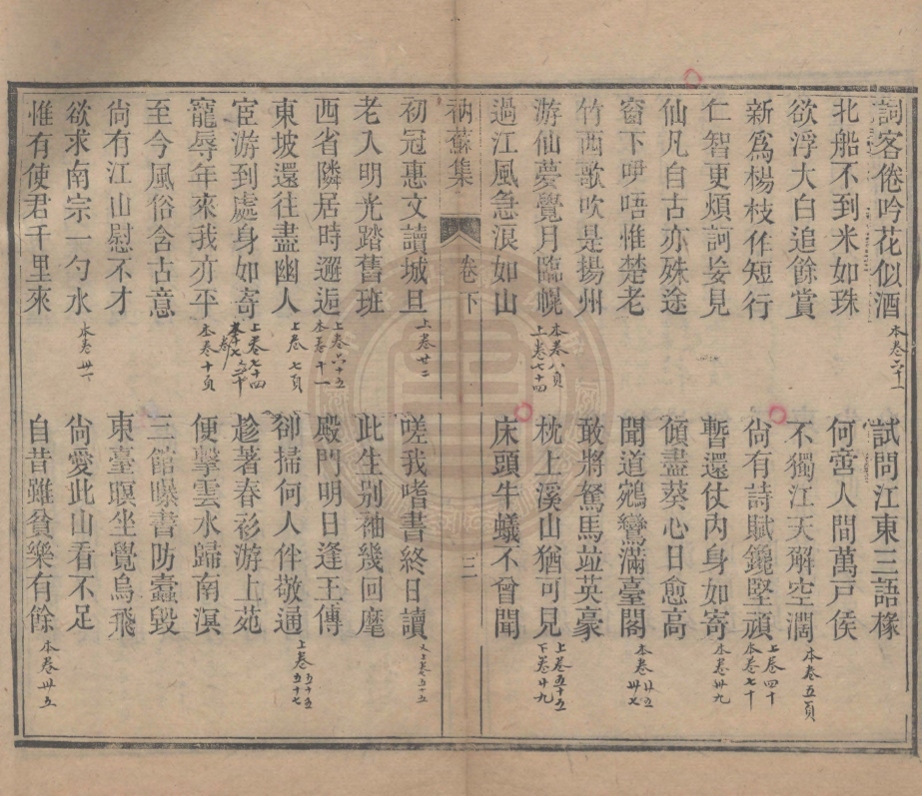 詞客倦吟花似酒 本卷二十一 試問江東三語掾
北船不到米如珠 何啻人間萬戶侯
欲浮大白追餘賞 不獨江天解空濶 本卷五頁
新爲楊枝作短行 尙有詩賦鑱堅頑 上卷四十 本卷七十
仁智更煩訶妄見 暫還仗內身如寄 本卷卅九
仙凡自古亦殊途 傾盡葵心日愈高
窗下吚唔惟楚老 聞道鵷鸞滿臺閣 本卷廿五 卅七
竹西歌吹是揚州 敢將駑馬竝英豪
游仙夢覺月臨幌 本卷八頁 上卷七十四 枕上溪山猶可見 上卷五十五 下卷廿九
過江風急浪如山 床頭牛蟻不曾聞
衲蘇集 卷下 三
初冠惠文讀城旦 上卷廿二 嗟我嗜書終日讀 上卷五十五
老入明光踏舊班 此生別袖幾回麾
西省隣居時邂逅 上卷六十五 本卷十一 殿門明日逢王傳
東坡還往盡幽人 上卷七頁 卻掃何人伴敬通 上卷五十五 五十七
宦游到處身如寄 上卷七十四 趁著春衫游上苑
寵辱年來我亦平 本卷十頁 便擊雲水歸南溟
至今風俗含古意 三館曝書防蠹毀
尙有江山慰不才 東臺瞑坐覺烏飛
欲求南宗一勺水 本卷卅一 尙愛此山看不足
惟有使君千里來 自昔雖貧樂有餘 本卷卅五